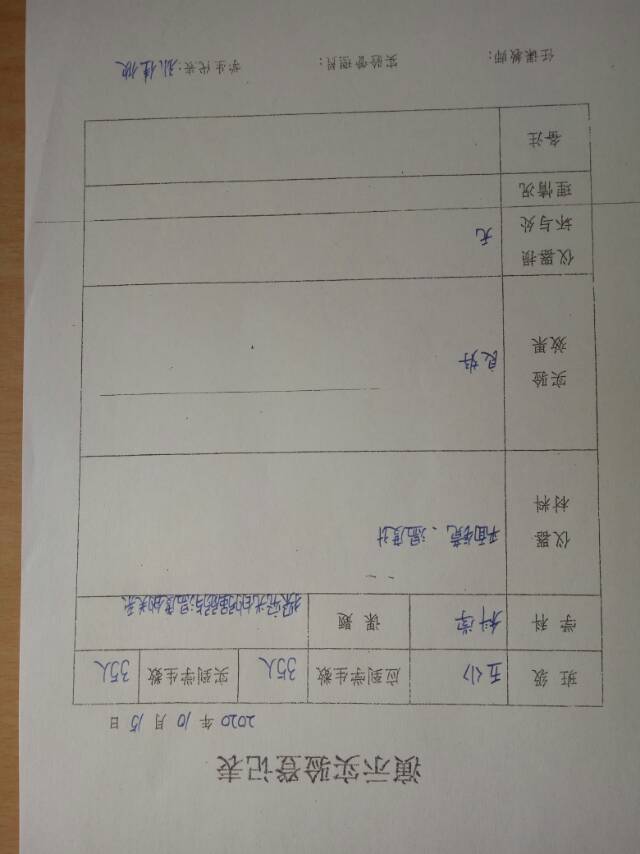 演示实验登记表
2020 年 10 月 15 日
班级 五(1) 应到学生数 35人 实到学生数 35人
学科 科学 课题 探究光的强弱与温度的关系
仪器 平面镜、温度计
材料
实验 良好
效果
仪器损 无
坏与处
理情况
备注
任课教师: 实验管理员: 学生代表: